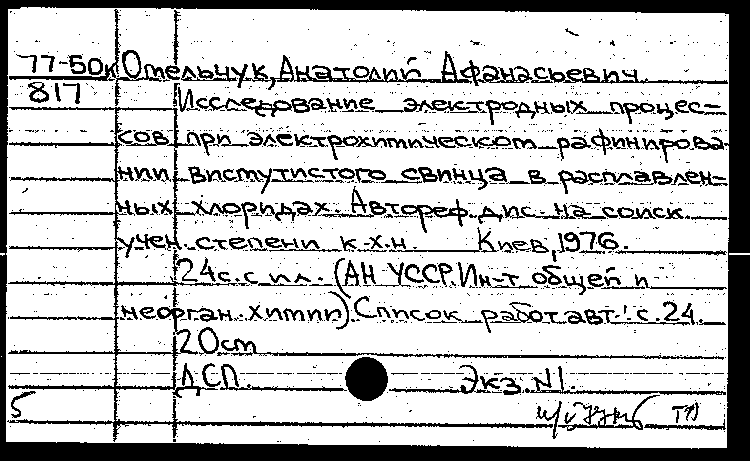 77-50к Отельчук, Анатолий Афанасьевич.
817 Исследование электродных процес-
сов при электрохимическом рафинирова-
нии висмутистого свинца в расплавлен-
ных хлоридах. Автореф. дис. на соиск.
учен. степени к.х.н. Киев, 1976.
24с. с ил. (АН УССР. Ин-т общей и
неорган. химии). Список работ авт.: с. 24.
20cm
ДСП. Экз. N1.
5